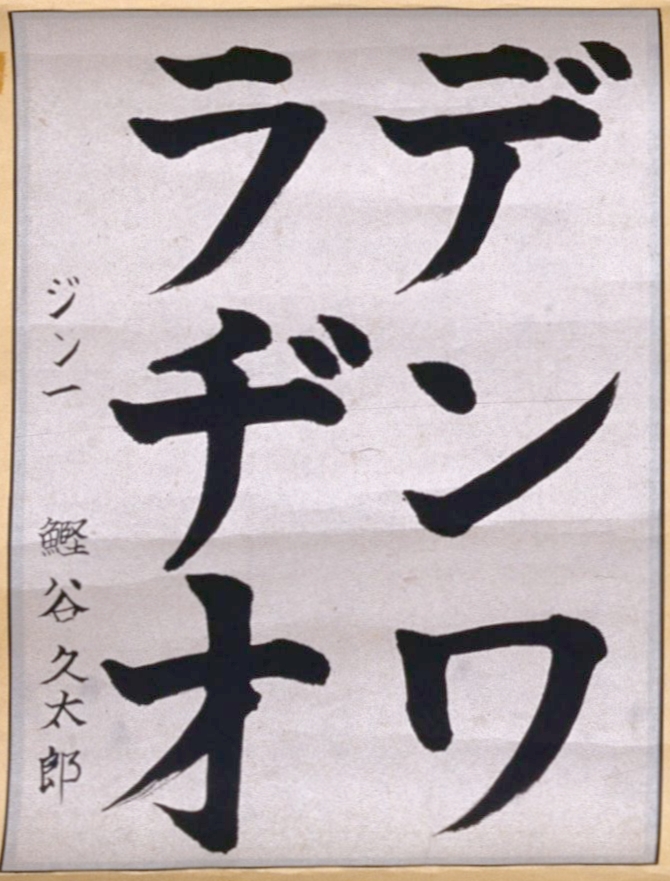 デンワ
ラヂオ
ジン一 鰹谷久太郎